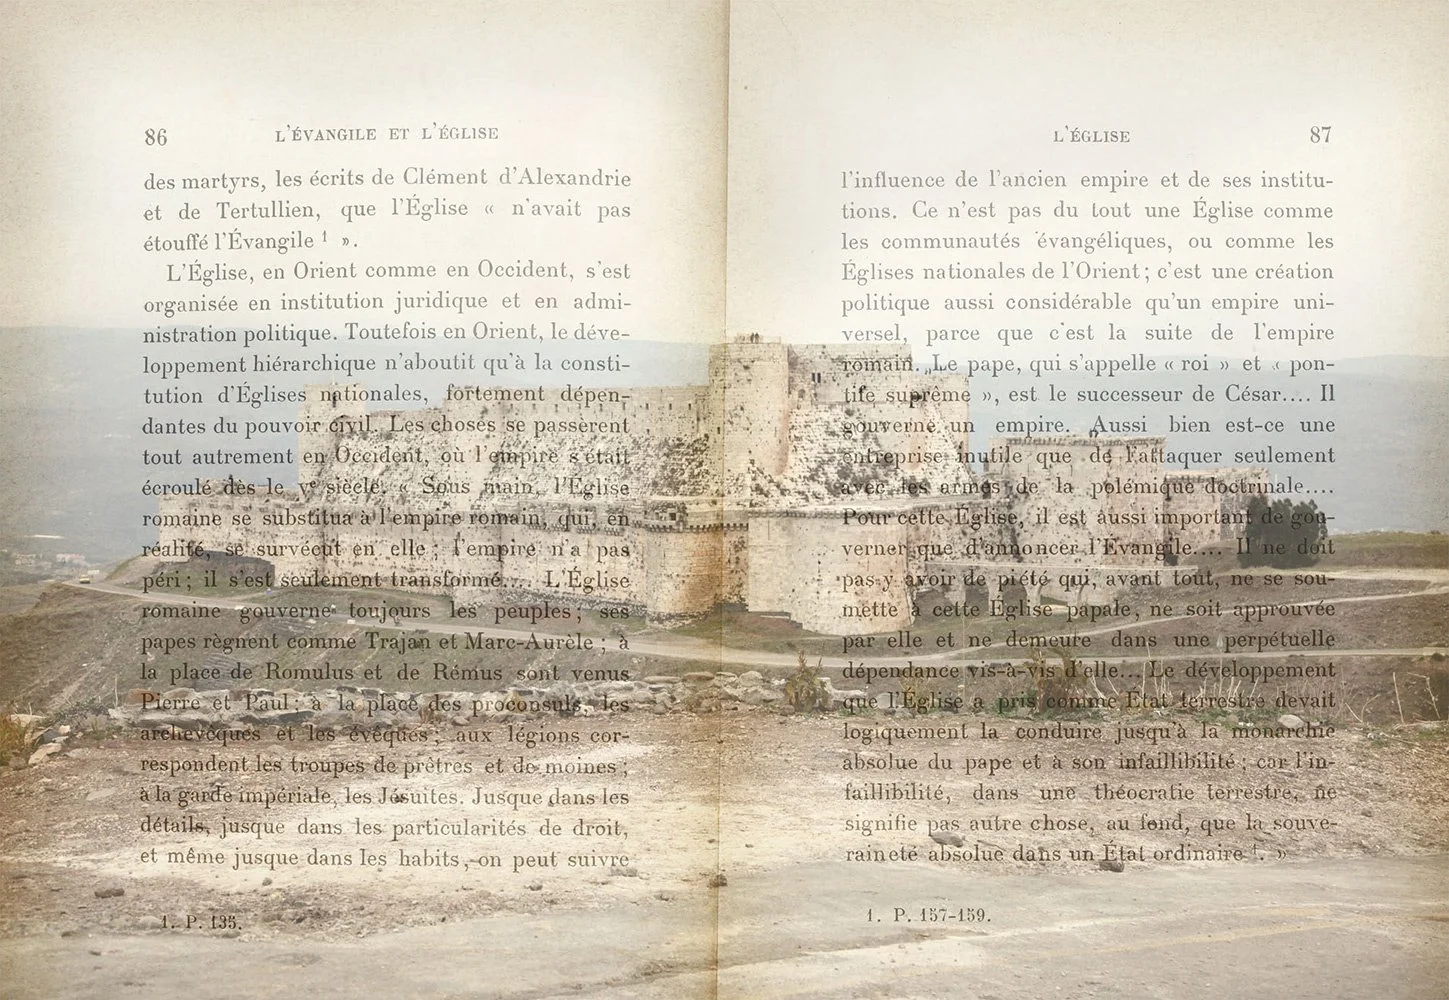 86
L'ÉVANGILE ET L'ÉGLISE
des martyrs, les écrits de Clément d'Alexandrie
et de Tertullien, que l'Église « n'avait pas
étouffé l'Évangile ¹ ».
L'Église, en Orient comme en Occident, s'est
organisée en institution juridique et en admi-
nistration politique. Toutefois en Orient, le déve-
loppement hiérarchique n'aboutit qu'à la consti-
tution d'Églises nationales, fortement dépen-
dantes du pouvoir civil. Les choses se passèrent
tout autrement en Occident, où l'empire s'était
écroulé dès le vᵉ siècle. « Sous main, l'Église
romaine se substitua à l'empire romain, qui, en
réalité, se survécut en elle ; l'empire n'a pas
péri ; il s'est seulement transformé.... L'Église
romaine gouverne toujours les peuples ; ses
papes règnent comme Trajan et Marc-Aurèle ; à
la place de Romulus et de Rémus sont venus
Pierre et Paul ; à la place des proconsuls, les
archevêques et les évêques ; aux légions cor-
respondent les troupes de prêtres et de moines ;
à la garde impériale, les Jésuites. Jusque dans les
détails, jusque dans les particularités de droit,
et même jusque dans les habits, on peut suivre
1. P. 135.
L'ÉGLISE
87
l'influence de l'ancien empire et de ses institu-
tions. Ce n'est pas du tout une Église comme
les communautés évangéliques, ou comme les
Églises nationales de l'Orient ; c'est une création
politique aussi considérable qu'un empire uni-
versel, parce que c'est la suite de l'empire
romain. Le pape, qui s'appelle « roi » et « pon-
tife suprême », est le successeur de César.... Il
gouverne un empire. Aussi bien est-ce une
entreprise inutile que de l'attaquer seulement
avec les armes de la polémique doctrinale....
Pour cette Église, il est aussi important de gou-
verner que d'annoncer l'Évangile.... Il ne doit
pas y avoir de piété qui, avant tout, ne se sou-
mette à cette Église papale, ne soit approuvée
par elle et ne demeure dans une perpétuelle
dépendance vis-à-vis d'elle... Le développement
que l'Église a pris comme État terrestre devait
logiquement la conduire jusqu'à la monarchie
absolue du pape et à son infaillibilité ; car l'in-
faillibilité, dans une théocratie terrestre, ne
signifie pas autre chose, au fond, que la souve-
raineté absolue dans un État ordinaire ¹. »
1. P. 157-159.